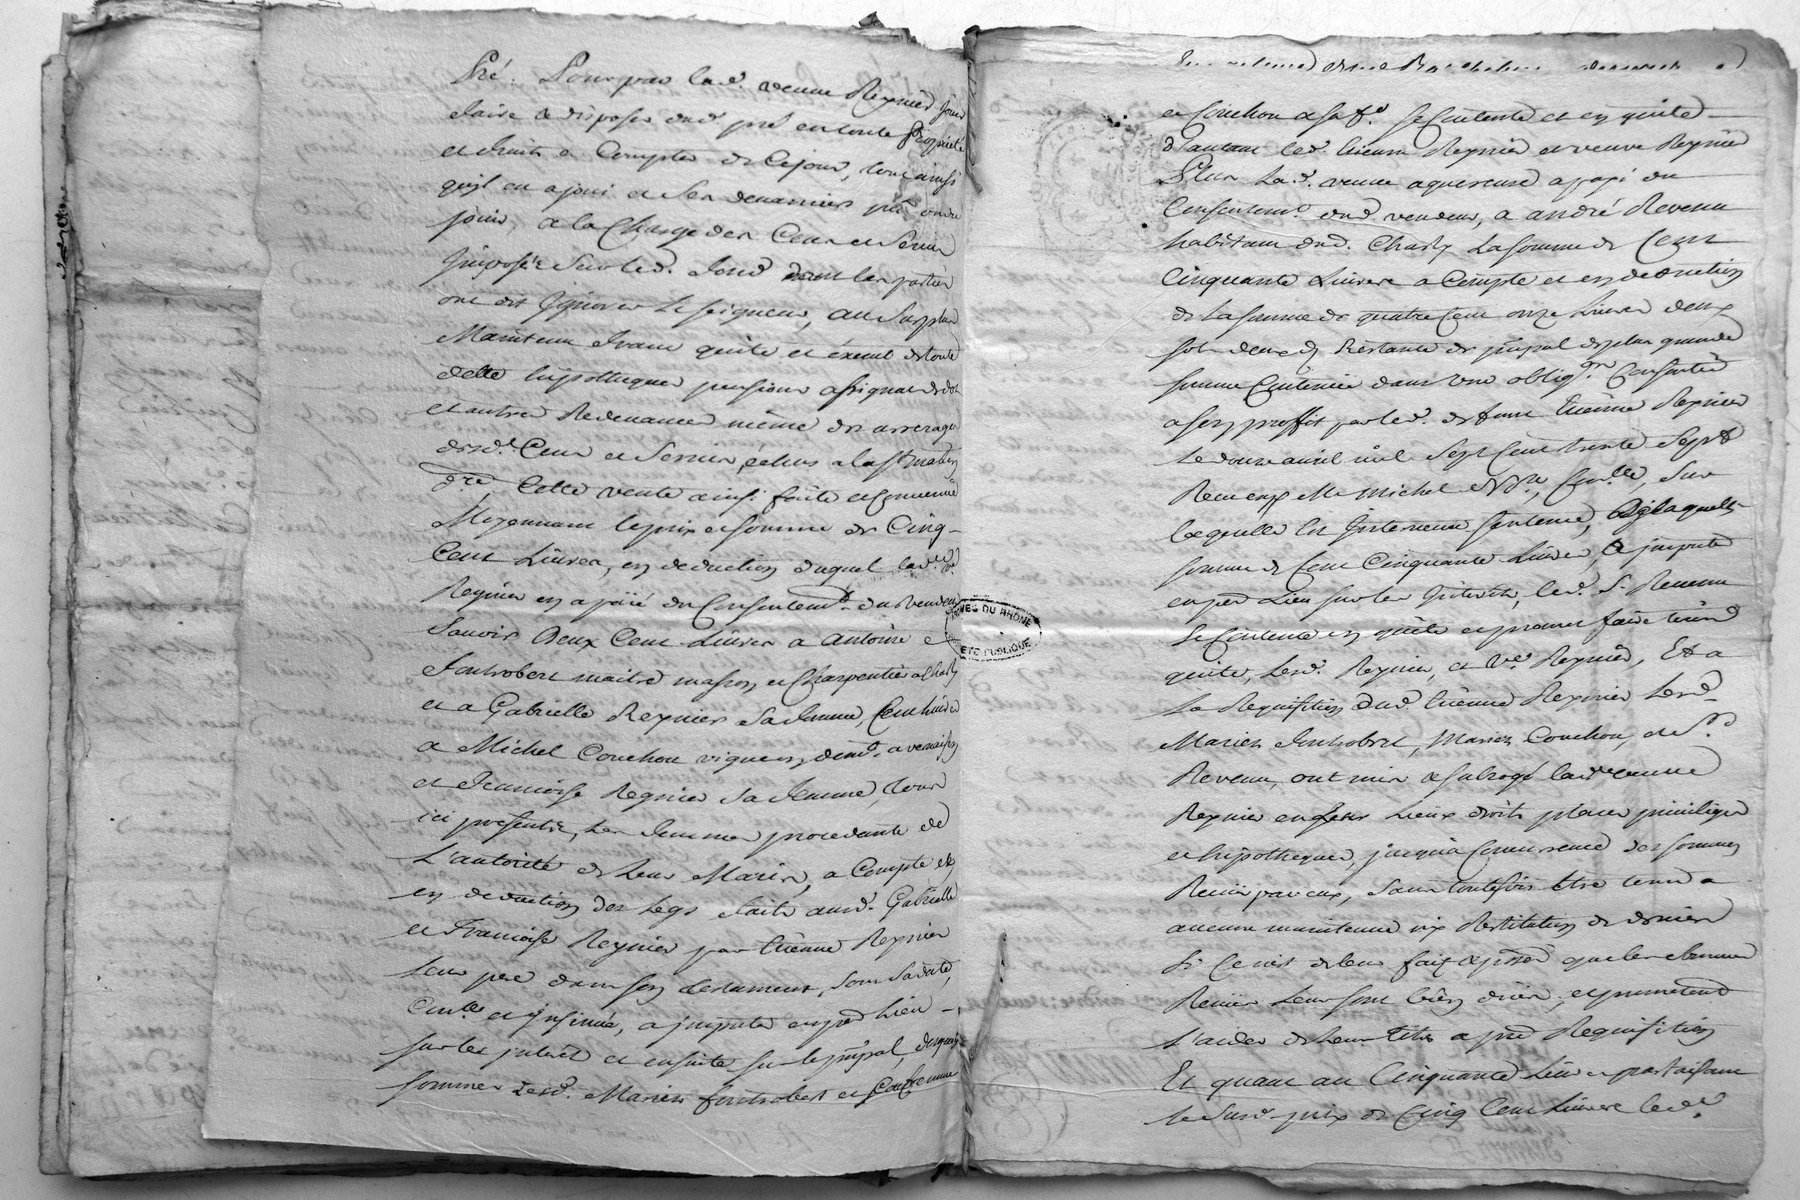 Pré. Pour par lad. veuve Reynier jouir
faire & disposer dud. pré en toute proprieté
et fruits a Compter de Cejour, tout ainsi
quil en a joui et Ses devanciers pû ou dû
jouir, a la Charge des Cens et Servis
Imposés Sur led. fond dont les parties
ont dit Ignorer le seigneur, au Surplus
Maintenu franc quitte et exempt de toute
dette hipotheques pensions assignat de dot
et autres Redevances même des arrerages
desd. Cens et Servis échus a la St martin
Cette vente ainsi faite et Convenüe
Moyennant le prix et somme de Cinq
Cent Livres, en deduction duquel lad. ve.
Reynier en a païé du Consentemt. du Vendeur
Savoir Deux Cent Livres a Antoine
fontrobert maitre masson et Charpentier a Charly
et a Gabrielle Reynier Sa femme, Cent livres
a Michel Couchou vigneron demt. a vernaison
et Francoise Reynier Sa femme, tous
ici presents, les femmes procedante de
L'autorité de leurs Maris, a Compte et
en deduction des Legs faits auxd. Gabrielle
et Francoise Reynier par Etienne Reynier
Leur pere dans son testament, sous Sa date,
Conllé et Insinué, a imputer en pred Lieu
sur les interet et ensuite sur le prinpal, desquelles
sommes lesd. Mariés fontrobert et Couchou
et Couchou & sa fe. se Contente et en quitte
D'autant led. Etienne Reynier et veuve Reynier
Plus Lad. veuve aquereuse a payé du
Consentemt. dud. vendeur, a andré Revenu
habitant dud. Charly La somme de Cent
Cinquante Livres a Compte et en deduction
de La somme de quatre Cent onze Livres deux
sols deux d Restante de prinpal de plus grande
somme Contenüe dans une obligon Consentie
a son proffit par led. defunt Etienne Reynier
Le douze avril mil Sept Cent trente Sept
Receu par Me Michel Conllé, Sur
laquelle est Intervenue sentence, laquelle
somme de Cent Cinquante Livres, a imputer
en pred Lieu sur les Interets, led. S. Revenu
se Contente en quitte et promet faire tenir
quitte, Lesd. Reynier, et ve. Reynier, Et a
La Requisition dud. Etienne Reynier Lesd.
Mariés fontrobert, Mariés Couchou, et Sr.
Revenu, ont mis & subrogé lad. veuve
Reynier en leurs Lieux droits places privileges
et hipotheques, jusqu'a Concurrence des sommes
Receües par eux, sans toutefois être tenus a
aucune maintenue ni Restitution de deniers
si Ce n'est de leur fait & que les sommes
Recües Leur sont bien dües, et promettent
L'aider de leurs titres a pre Requisition
Et quant au Cinquante Livres parfaisant
le Susd. prix de Cinq Cent Livres led.
ARCHIVES DU RHONE
PROPRIETE PUBLIQUE